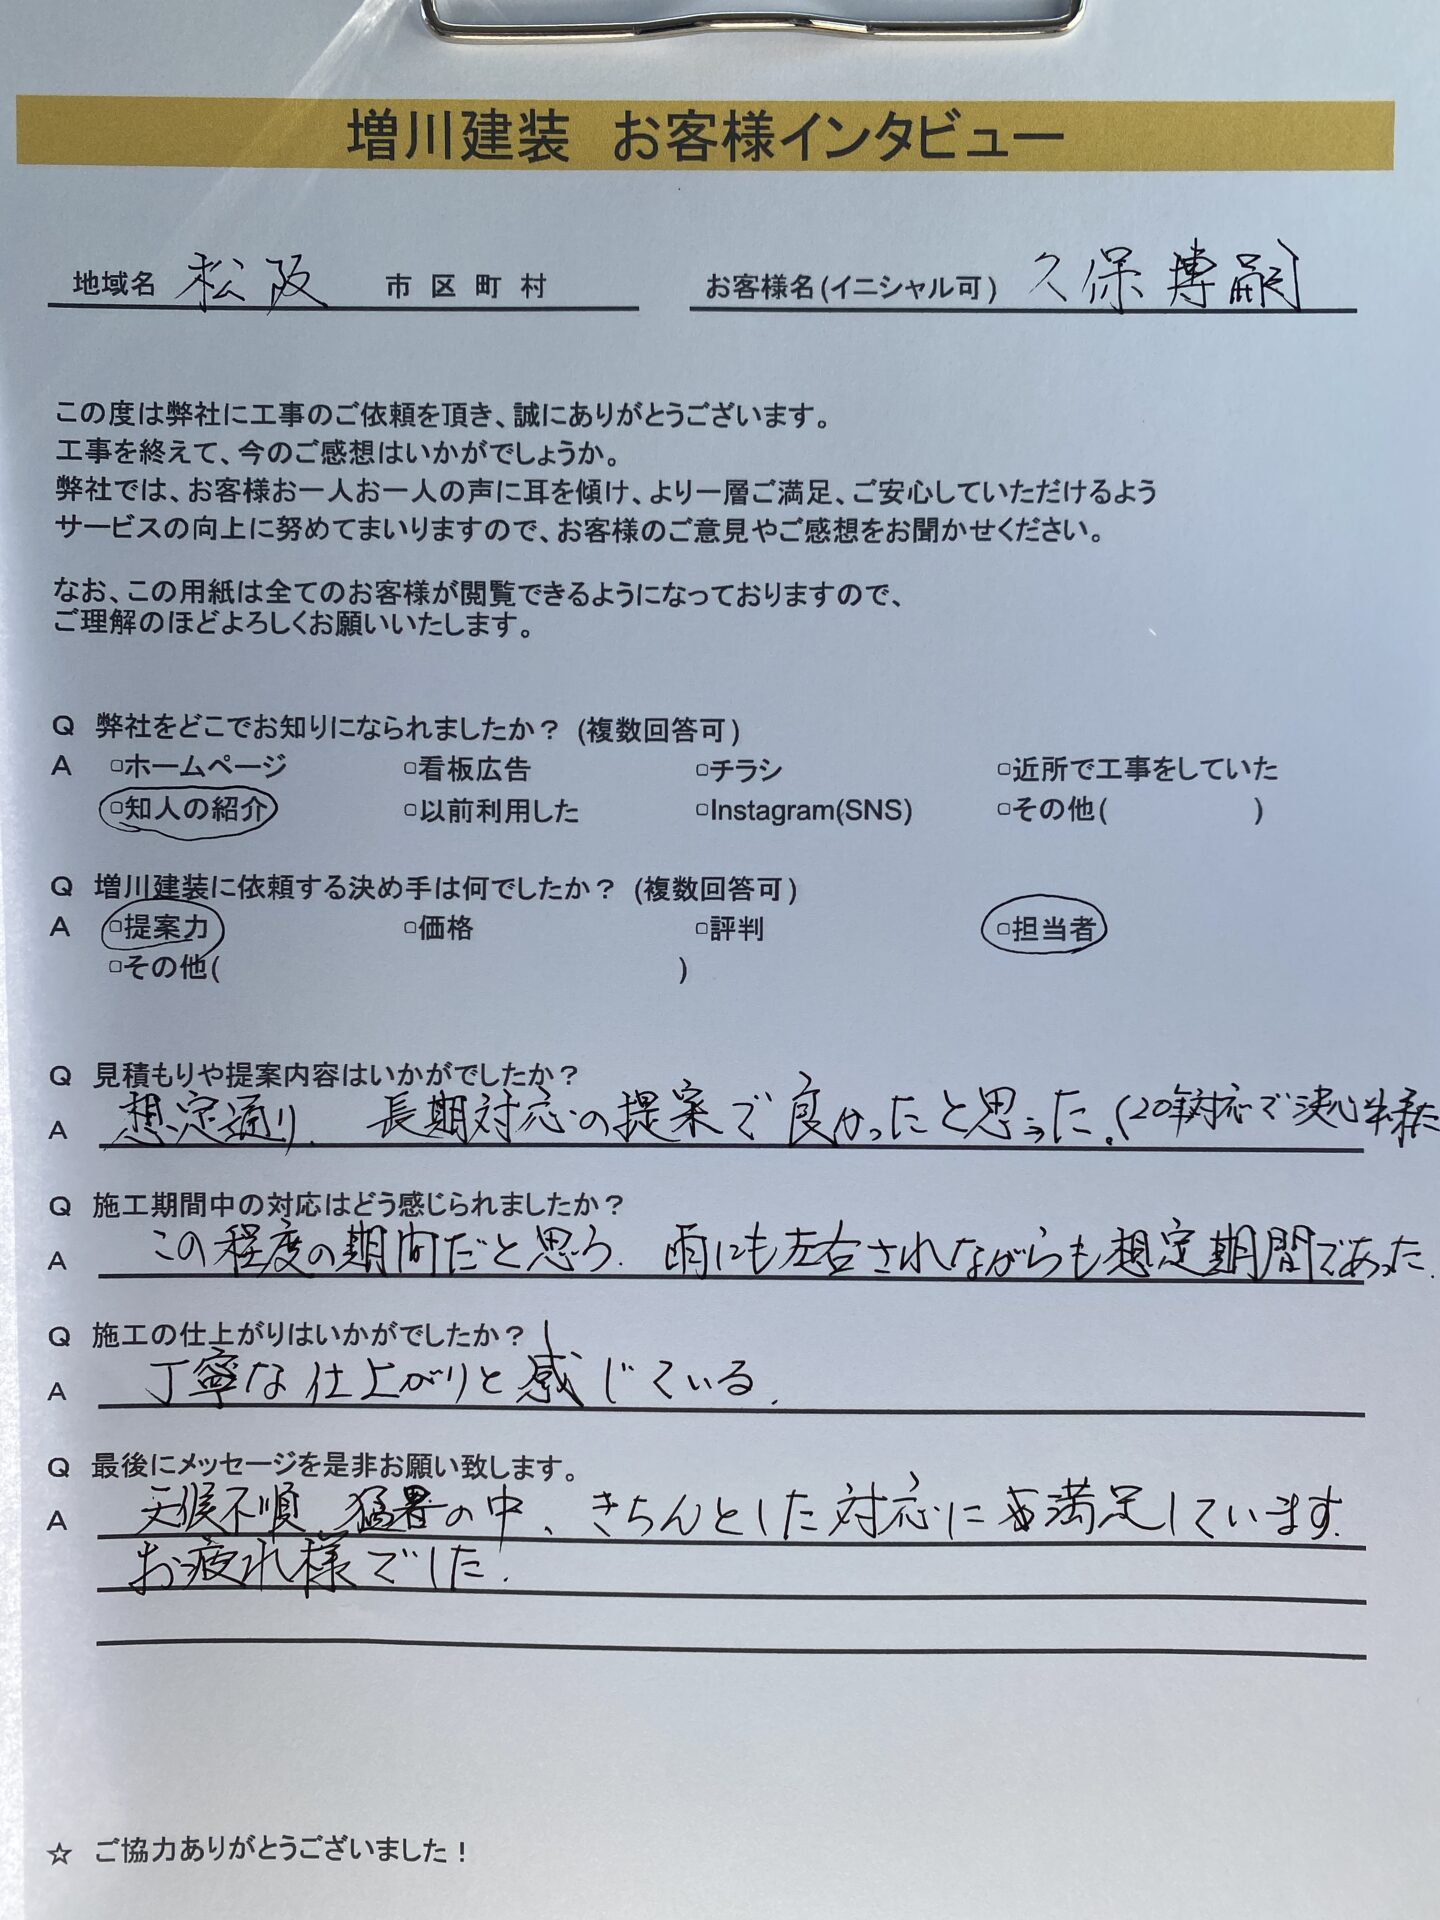 増川建装　お客様インタビュー
地域名 松阪 市 区 町 村 お客様名(イニシャル可) 久保 博嗣
この度は弊社に工事のご依頼を頂き、誠にありがとうございます。
工事を終えて、今のご感想はいかがでしょうか。
弊社では、お客様お一人お一人の声に耳を傾け、より一層ご満足、ご安心していただけるよう
サービスの向上に努めてまいりますので、お客様のご意見やご感想をお聞かせください。
なお、この用紙は全てのお客様が閲覧できるようになっておりますので、
ご理解のほどよろしくお願いいたします。
Q 弊社をどこでお知りになられましたか？(複数回答可)
A □ホームページ □看板広告 □チラシ □近所で工事をしていた
□知人の紹介 □以前利用した □Instagram(SNS) □その他( )
Q 増川建装に依頼する決め手は何でしたか？(複数回答可)
A □提案力 □価格 □評判 □担当者
□その他( )
Q 見積もりや提案内容はいかがでしたか？
A 想定通り、長期対応の提案で良かったと思った。(20年対応で決心出来た
Q 施工期間中の対応はどう感じられましたか？
A この程度の期間だと思う。雨にも左右されながらも想定期間であった。
Q 施工の仕上がりはいかがでしたか？
A 丁寧な仕上がりと感じている。
Q 最後にメッセージを是非お願い致します。
A 天候不順、猛暑の中、きちんとした対応に満足しています。
お疲れ様でした。
☆ ご協力ありがとうございました！